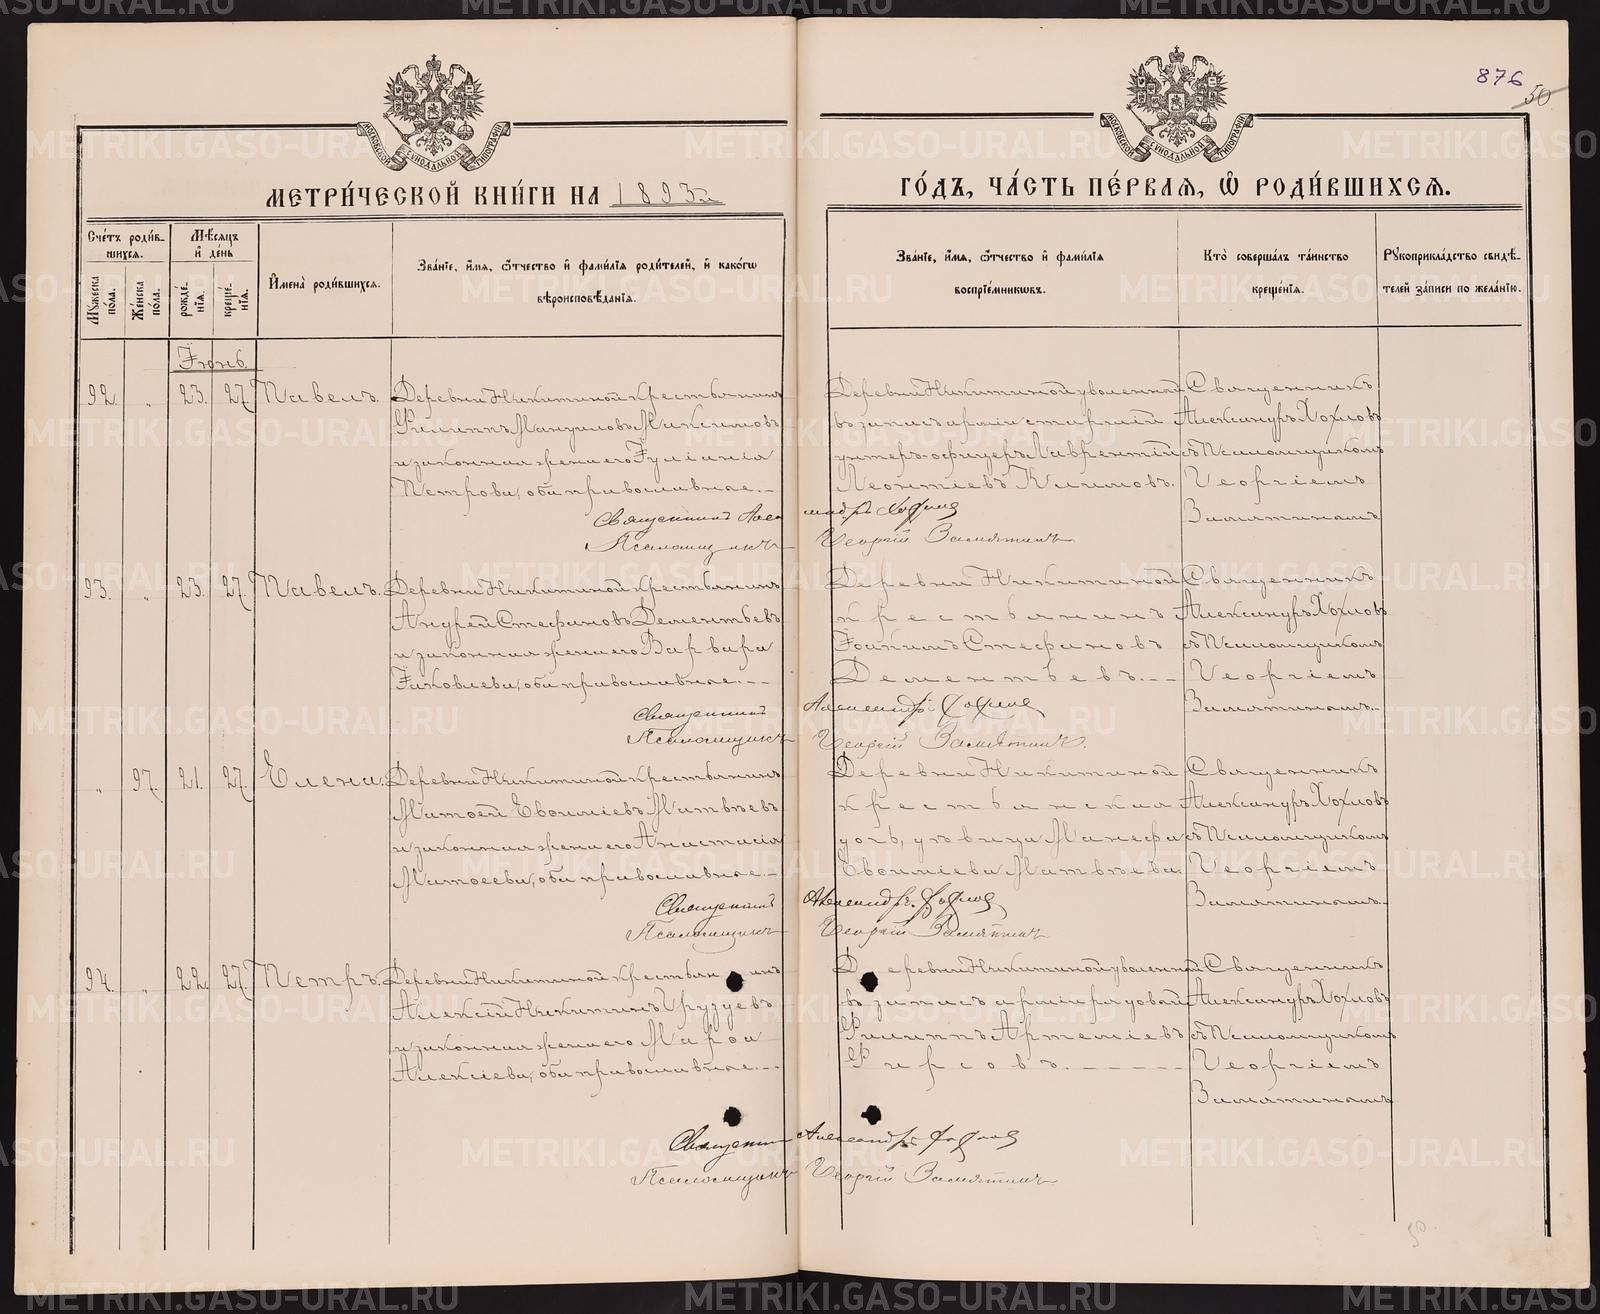 876
50
МЕТРИ́ЧЕСКОЙ КНИ́ГИ НА 1893й
ГО́ДЪ, ЧА́СТЬ ПЕ́РВАЯ, Ѽ РОДИ́ВШИХСѦ.
Сче́тъ роди́в-
шихся.
Мꙋжеска пола.
Же́нска пола.
Мѣ́сяцъ
и҆ де́нь
рожде́нїя.
креще́нїя.
И҆мена̀ роди́вшихся.
Зва́нїе, и҆́мя, ѻ҆́тчество и҆ фами́лїя роди́телей, и҆ како́гѡ
вѣроисповѣ́данїя.
Зва́нїе, и҆́мя, ѻ҆́тчество и҆ фами́лїя
воспрїе́мникѡвъ.
Кто̀ соверша́лъ та́инство
креще́нїя.
Рꙋкоприкла́дство свидѣ́-
телей за́писи по жела́нїю.
Іюнь.
92. " 23. 27. Павелъ.
Деревни Никитиной крестьянинъ
Филиппъ Мануиловъ Максимовъ
и законная жена его Іуліанія
Петрова, оба православные.
Деревни Никитиной уволенный
въ запасъ арміи старшій
унтеръ-офицеръ Лаврентій
Леонтіевъ Климовъ.
Священникъ
Александръ Хохловъ
съ Псаломщикомъ
Георгіемъ
Замятинымъ
Священникъ Александръ Хохлов
Псаломщикъ Георгій Замятинъ
93. " 23. 27. Павелъ.
Деревни Никитиной крестьянинъ
Андрей Стефановъ Дементьевъ
и законная жена его Варвара
Іаковлева, оба православные.
Деревни Никитиной
крестьянинъ
Іоакимъ Стефановъ
Дементьевъ.
Священникъ
Александръ Хохловъ
съ Псаломщикомъ
Георгіемъ
Замятинымъ.
Священникъ Александръ Хохлов
Псаломщикъ Георгій Замятинъ.
" 97. 21. 27. Елена.
Деревни Никитиной крестьянинъ
Евфиміевъ Матвѣевъ
и законная жена его Анастасія
оба православные.
Деревни Никитиной
крестьянская
дочь, дѣвица Манефа
Евфиміева Матвѣева.
Священникъ
Александръ Хохловъ
съ Псаломщикомъ
Георгіемъ
Замятинымъ.
Священникъ Александръ Хохлов
Псаломщикъ Георгій Замятинъ
94. " 22. 27. Петръ.
Деревни Никитиной крестьянинъ
Алексій Никитинъ Груздевъ
и законная жена его Марфа
Алексіева, оба православные.
Деревни Никитиной уволенный
въ запасъ арміи рядовой
Филиппъ Артеміевъ
Фирсовъ.
Священникъ
Александръ Хохловъ
съ Псаломщикомъ
Георгіемъ
Замятинымъ
Священник Александръ Хохлов
Псаломщикъ Георгій Замятинъ
50.
METRIKI.GASO-URAL.RU